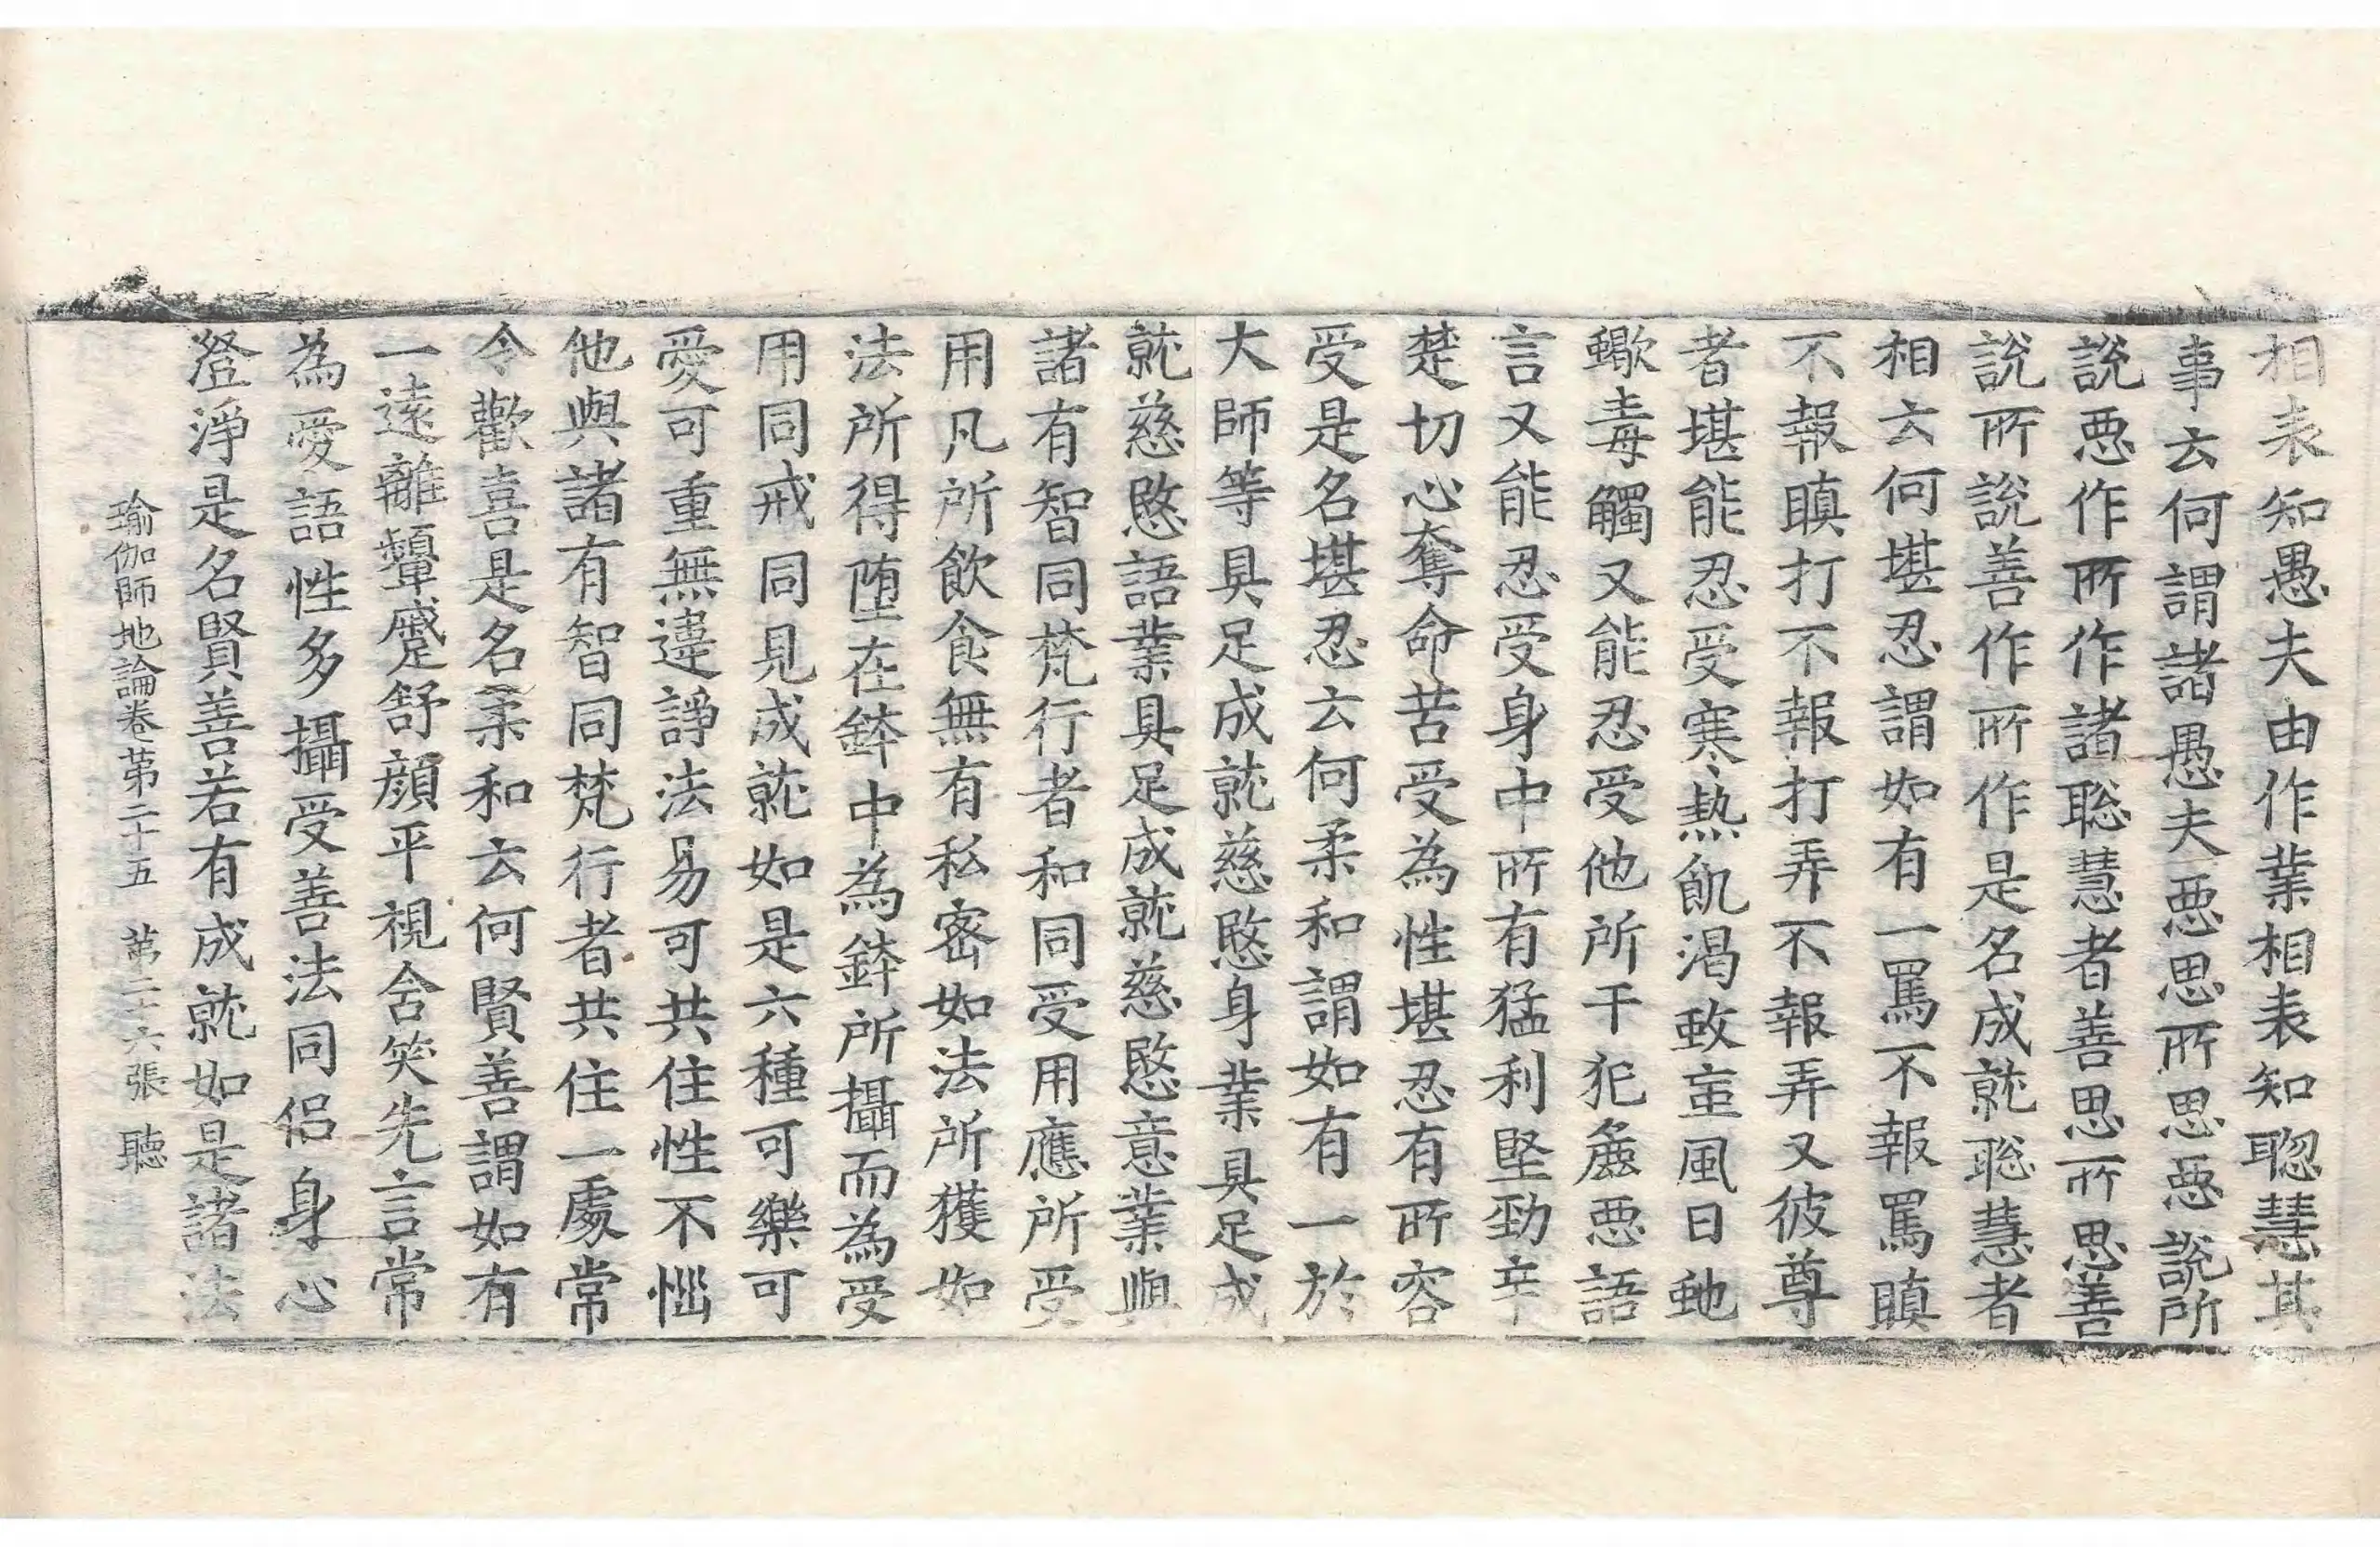 相表知愚夫由作業相表知聦慧其
事云何謂諸愚夫惡思所思惡說所
說惡作所作諸聡慧者善思所思善
說所說善作所作是名成就聡慧者
相云何堪忍謂如有一罵不報罵瞋
不報瞋打不報打弄不報弄又彼尊
者堪能忍受寒熱飢渴蚊䖟風日虵
蠍毒觸又能忍受他所干犯麁惡語
言又能忍受身中所有猛利堅勁辛
楚切心奪命苦受為性堪忍有所容
受是名堪忍云何柔和謂如有一於
大師等具足成就慈愍身業具足成
就慈愍語業具足成就慈愍意業與
諸有智同梵行者和同受用應所受
用凡所飲食無有私密如法所獲如
法所得墮在鉢中為鉢所攝而為受
用同戒同見成就如是六種可樂可
愛可重無違諍法易可共住性不惱
他與諸有智同梵行者共住一處常
令歡喜是名柔和云何賢善謂如有
一遠離顰蹙舒顏平視含笑先言常
為愛語性多攝受善法同侶身心
澄淨是名賢善若有成就如是諸法
瑜伽師地論卷第二十五　第二十六張　聽